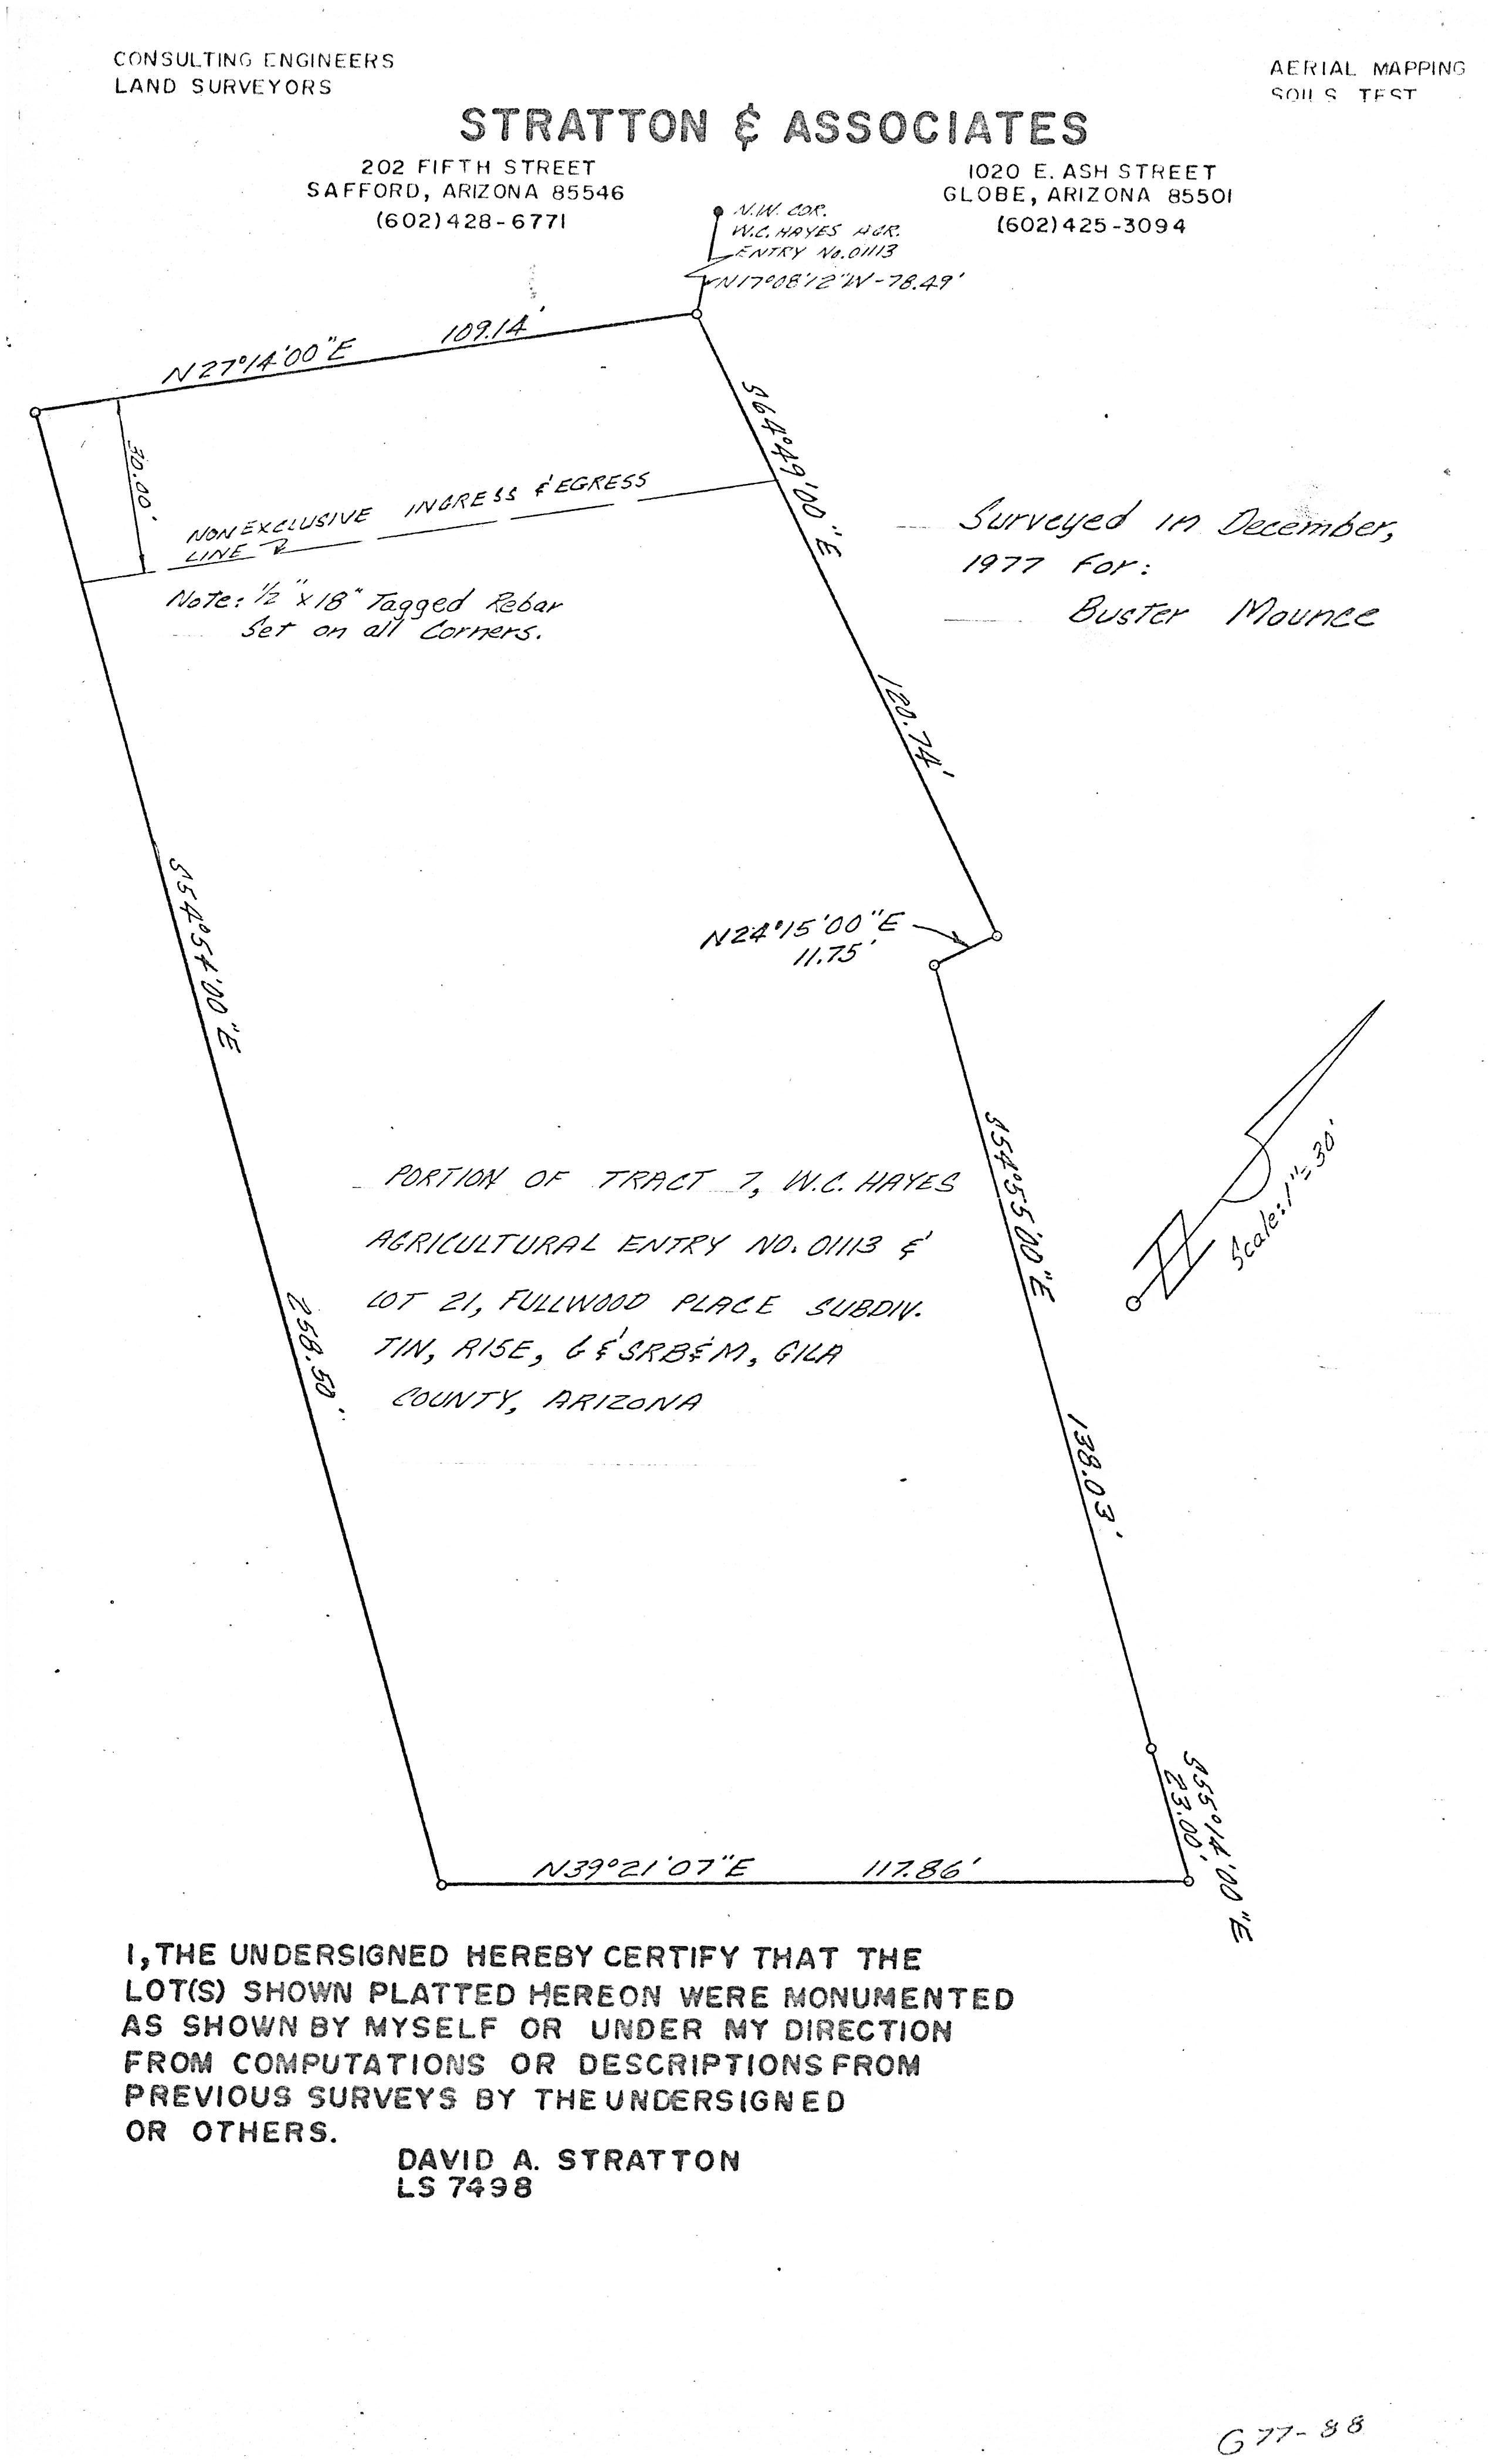 CONSULTING ENGINEERS
LAND SURVEYORS
AERIAL MAPPING
SOILS TEST
STRATTON & ASSOCIATES
202 FIFTH STREET
SAFFORD, ARIZONA 85546
(602)428-6771
1020 E. ASH STREET
GLOBE, ARIZONA 85501
(602)425-3094
N.W. COR.
W.C. HAYES AGR.
ENTRY No. 01113
N17°08'12"W-78.49'
N27°14'00"E 109.14'
S64°49'00"E 120.74'
30.00'
NONEXCLUSIVE INGRESS & EGRESS
LINE
Note: 1/2" x 18" Tagged Rebar
Set on all Corners.
Surveyed in December,
1977 For:
Buster Mounce
S54°54'00"E 258.50'
N24°15'00"E
11.75'
S54°55'00"E 138.03'
Scale: 1"=30'
PORTION OF TRACT 7, W.C. HAYES
AGRICULTURAL ENTRY NO. 01113 &
LOT 21, FULLWOOD PLACE SUBDIV.
T1N, R15E, G&SRB&M, GILA
COUNTY, ARIZONA
S55°14'00"E
23.00'
N39°21'07"E 117.86'
I, THE UNDERSIGNED HEREBY CERTIFY THAT THE
LOT(S) SHOWN PLATTED HEREON WERE MONUMENTED
AS SHOWN BY MYSELF OR UNDER MY DIRECTION
FROM COMPUTATIONS OR DESCRIPTIONS FROM
PREVIOUS SURVEYS BY THE UNDERSIGNED
OR OTHERS.
DAVID A. STRATTON
LS 7498
G77-88